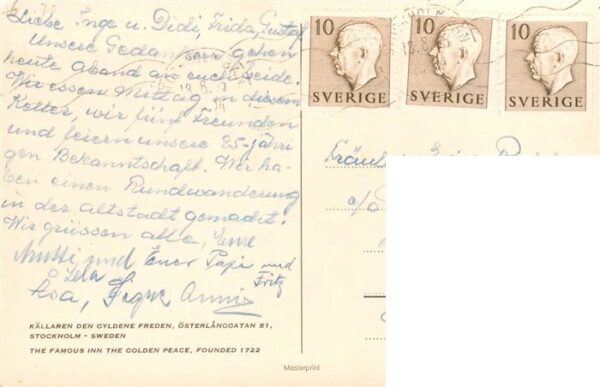 Liebe Inge u. Didi, Frida, Gustaf
Unsere Gedanken gehen
heute Abend an euch beide.
Wir essen Mittag in diesem
Keller, wir fünf Freunden
und feiern unsere 25-jähri
gen Bekanntschaft. Wir ha-
ben einen Rundwanderung
in der Altstadt gemacht.
Wir grüssen alle, Eure
Mutti und Euer Papi und
Fritz
Åsa, Signe Annie
10 SVERIGE
10 SVERIGE
10 SVERIGE
c/o
KÄLLAREN DEN GYLDENE FREDEN, ÖSTERLÅNGGATAN 51,
STOCKHOLM - SWEDEN
THE FAMOUS INN THE GOLDEN PEACE, FOUNDED 1722
Masterprint